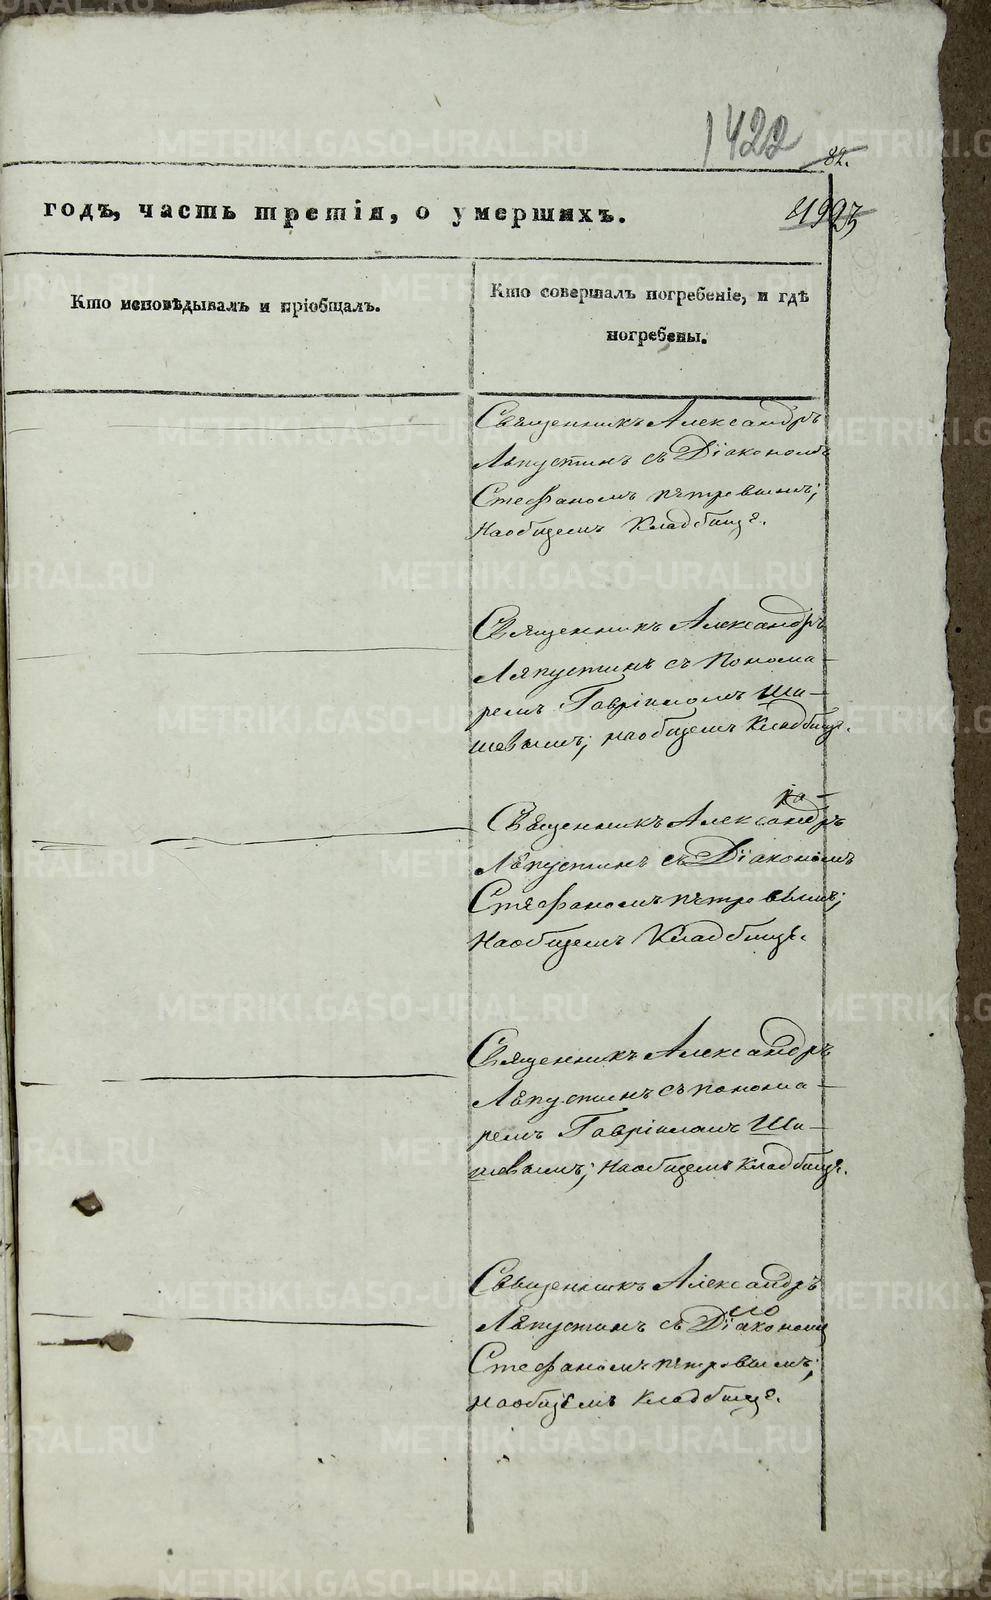 1422
82.
годъ, часть третія, о умершихъ.
Кто исповѣдывалъ и пріобщалъ.
Кто совершалъ погребеніе, и гдѣ
погребены.
Священникъ Александръ
Ляпустинъ съ Діакономъ
Стефаномъ Петровымъ;
на общемъ Кладбище.
Священникъ Александръ
Ляпустинъ съ Понома-
ремъ Гавріиломъ Ши-
шевымъ; на общемъ Кладбище.
Священникъ Александръ
Ляпустинъ съ Діакономъ
Стефаномъ Петровымъ;
на общемъ Кладбище.
Священникъ Александръ
Ляпустинъ съ понома-
ремъ Гавріиломъ Ши-
шевымъ; на общемъ Кладбище.
Священникъ Александръ
Ляпустинъ съ Діакономъ
Стефаномъ Петровымъ;
на общемъ Кладбище.
METRIKI.GASO-URAL.RU